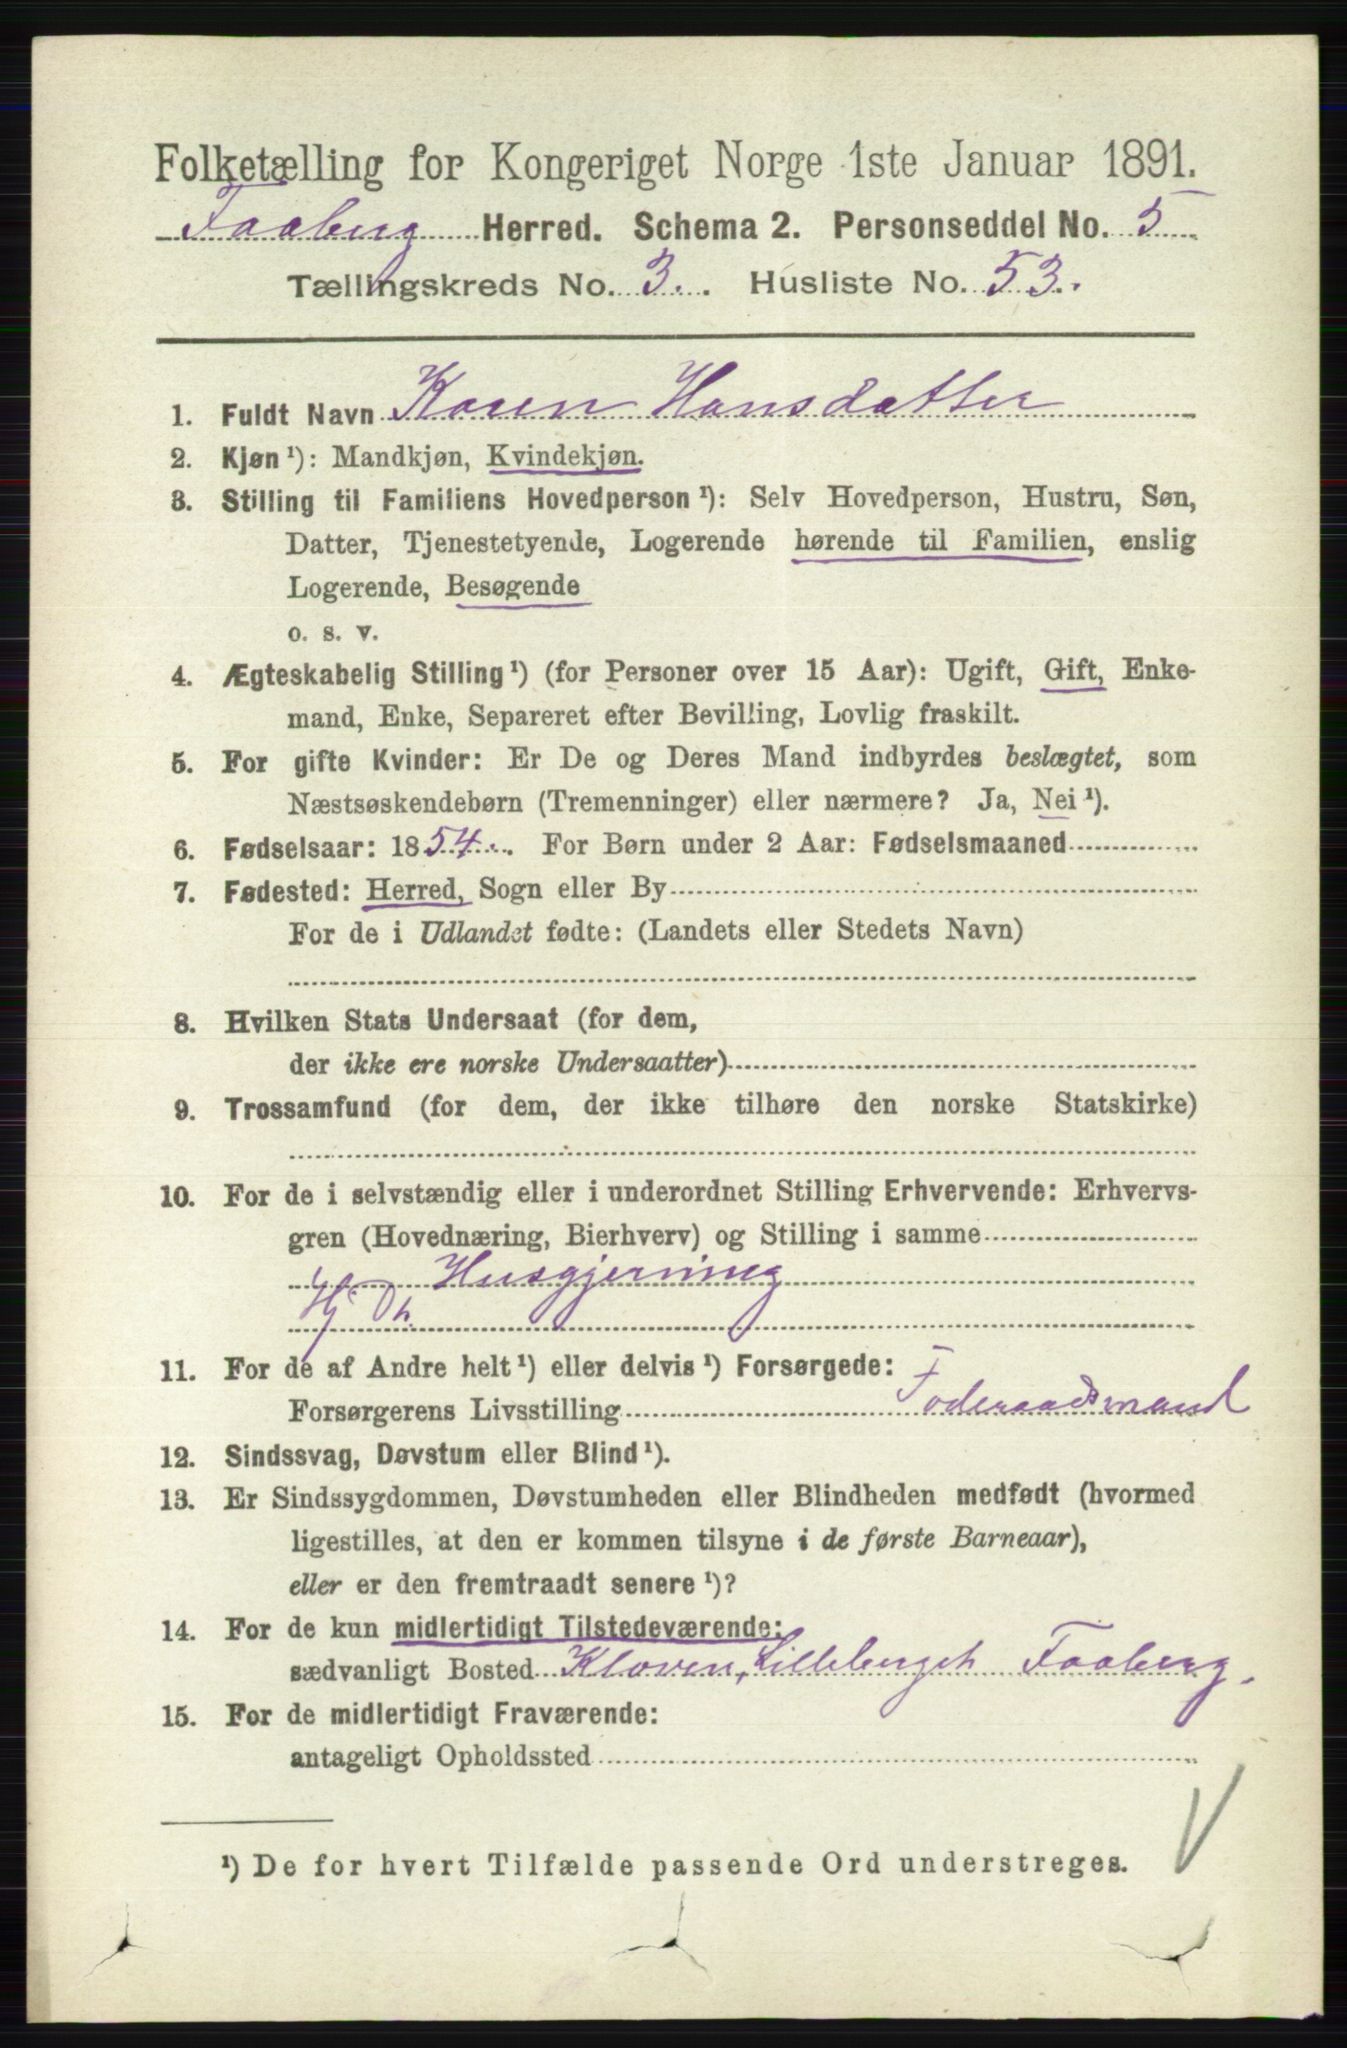 Folketælling for Kongeriget Norge 1ste Januar 1891.
Faaberg Herred. Schema 2. Personseddel No. 5
Tællingskreds No. 3. Husliste No. 53.
1. Fuldt Navn Karen Hansdatter
2. Kjøn ¹): Mandkjøn, Kvindekjøn.
3. Stilling til Familiens Hovedperson ¹): Selv Hovedperson, Hustru, Søn,
Datter, Tjenestetyende, Logerende hørende til Familien, enslig
Logerende, Besøgende
o. s. v.
4. Ægteskabelig Stilling ¹) (for Personer over 15 Aar): Ugift, Gift, Enke-
mand, Enke, Separeret efter Bevilling, Lovlig fraskilt.
5. For gifte Kvinder: Er De og Deres Mand indbyrdes beslægtet, som
Næstsøskendebørn (Tremenninger) eller nærmere? Ja, Nei ¹).
6. Fødselsaar: 1854. For Børn under 2 Aar: Fødselsmaaned
7. Fødested: Herred, Sogn eller By
For de i Udlandet fødte: (Landets eller Stedets Navn)
8. Hvilken Stats Undersaat (for dem,
der ikke ere norske Undersaatter)
9. Trossamfund (for dem, der ikke tilhøre den norske Statskirke)
10. For de i selvstændig eller i underordnet Stilling Erhvervende: Erhvervs-
gren (Hovednæring, Bierhverv) og Stilling i samme
Husgjerning
11. For de af Andre helt ¹) eller delvis ¹) Forsørgede:
Forsørgerens Livsstilling Foderaadsmand
12. Sindssvag, Døvstum eller Blind ¹).
13. Er Sindssygdommen, Døvstumheden eller Blindheden medfødt (hvormed
ligestilles, at den er kommen tilsyne i de første Barneaar),
eller er den fremtraadt senere ¹)?
14. For de kun midlertidigt Tilstedeværende:
sædvanligt Bosted Kloven, Lilleberget Faaberg.
15. For de midlertidigt Fraværende:
antageligt Opholdssted
¹) De for hvert Tilfælde passende Ord understreges.